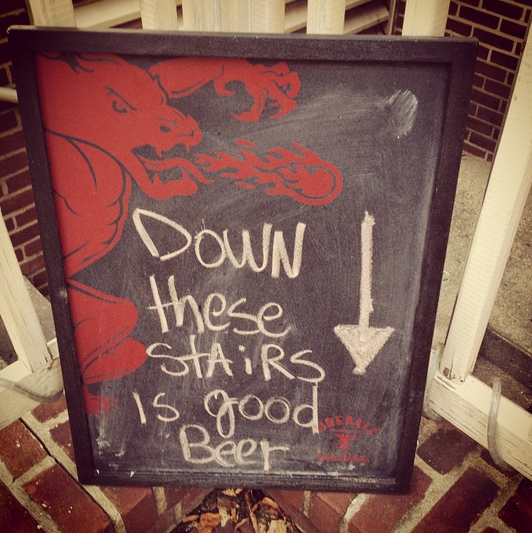 DOWN
these
STAIRS
Is good
Beer